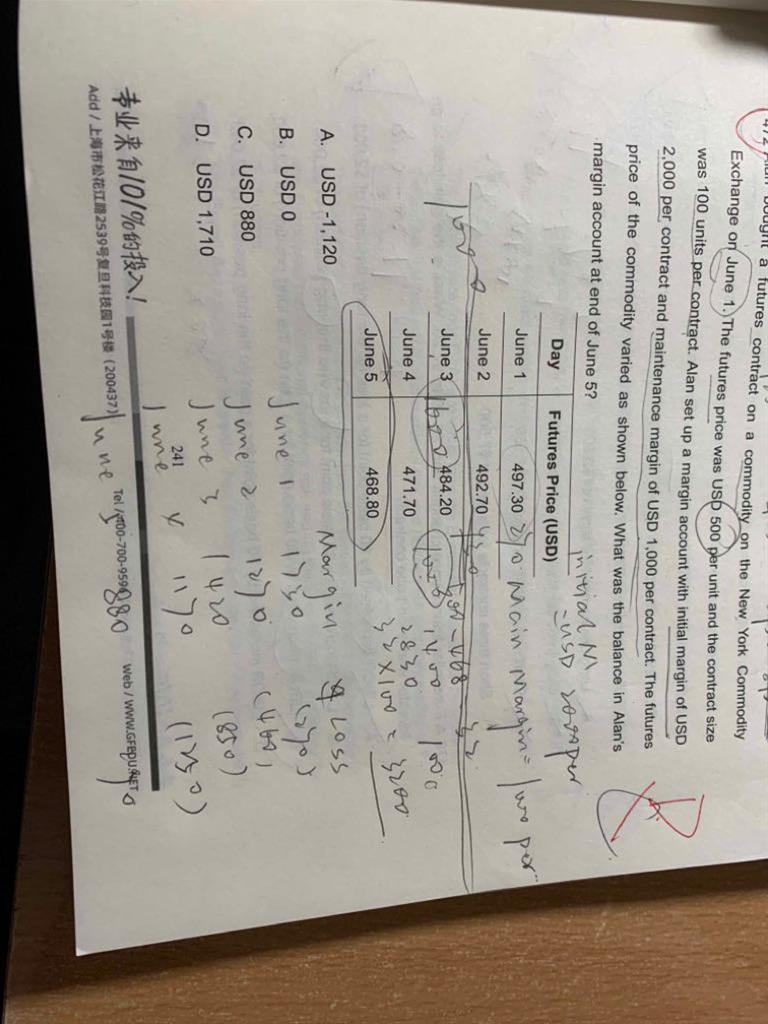 bought a futures contract on a commodity on the New York Commodity
Exchange on June 1. The futures price was USD 500 per unit and the contract size
was 100 units per contract. Alan set up a margin account with initial margin of USD
2,000 per contract and maintenance margin of USD 1,000 per contract. The futures
price of the commodity varied as shown below. What was the balance in Alan's
margin account at end of June 5?
initial M
=USD 2000 per
Day Futures Price (USD)
June 1 497.30 270 Main Margin = 1000 per
June 2 492.70
June 3 484.20
June 4 471.70
June 5 468.80
1400 1000
2830
32 x 100 = 3200
A. USD -1,120
B. USD 0
C. USD 880
D. USD 1,710
Margin Loss
June 1 1730 (270)
June 2 1270 (460)
June 3 1420 (850)
June 4 1170 (1250)
June 5 880 290
241
专业来自101%的投入!
Add / 上海市松花江路2539号复旦科技园1号楼 (200437) Tel / 400-700-959 Web / www.GFEDU.NET